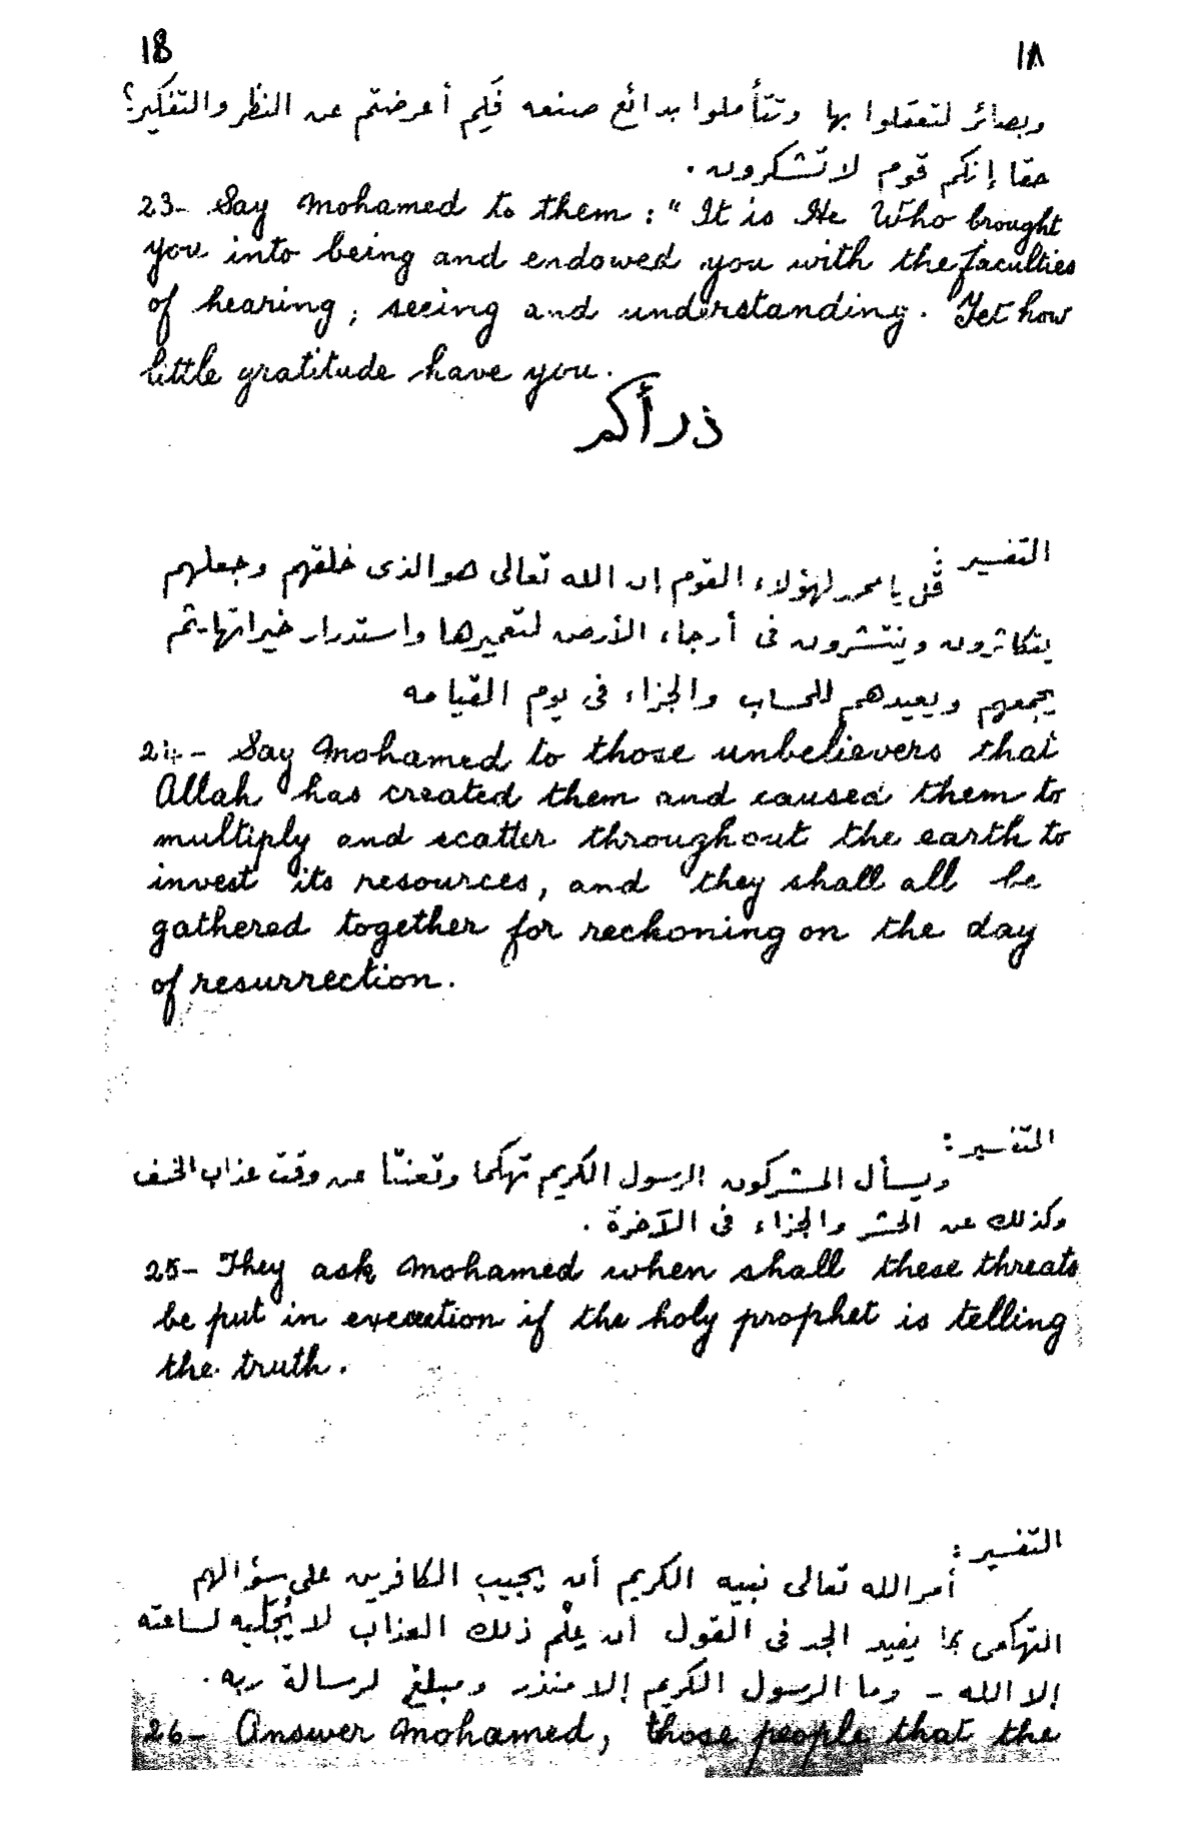 18
١٨
وبصائر لتعقلوا بها وتتأملوا بدائع صنعه فَلِم أعرضتم عن النظر والتفكير؟
حقا إنكم قوم لا تشكرون.
23- Say Mohamed to them: "It is He Who brought
you into being and endowed you with the faculties
of hearing, seeing and understanding. Yet how
little gratitude have you.
ذرأكم
التفسير:
قُل يا محمد لهؤلاء القوم إن الله تعالى هو الذى خلقهم وجعلهم
يتكاثرون وينتشرون فى أرجاء الأرض لتعميرها واستدرار خيراتها. ثم
يجمعهم ويعيدهم للحساب والجزاء فى يوم القيامه
24- Say Mohamed to those unbelievers that
Allah has created them and caused them to
multiply and scatter throughout the earth to
invest its resources, and they shall all be
gathered together for reckoning on the day
of resurrection.
التفسير:
ويسأل المشركون الرسول الكريم تهكما وتعنتا عن وقت عذاب الخسف
وكذلك عن الحشر والجزاء فى الآخرة.
25- They ask Mohamed when shall these threats
be put in execution if the holy prophet is telling
the truth.
التفسير:
أمر الله تعالى نبيه الكريم أن يجيب الكافرين على سؤالهم
التهكمى بما يفيد الجد فى القول أن عِلْم ذلك العذاب لا يُجَلِّيه لساعته
إلا الله - وما الرسول الكريم إلا منذر ومبلغ لرسالة ربه.
26- Answer Mohamed, those people that the